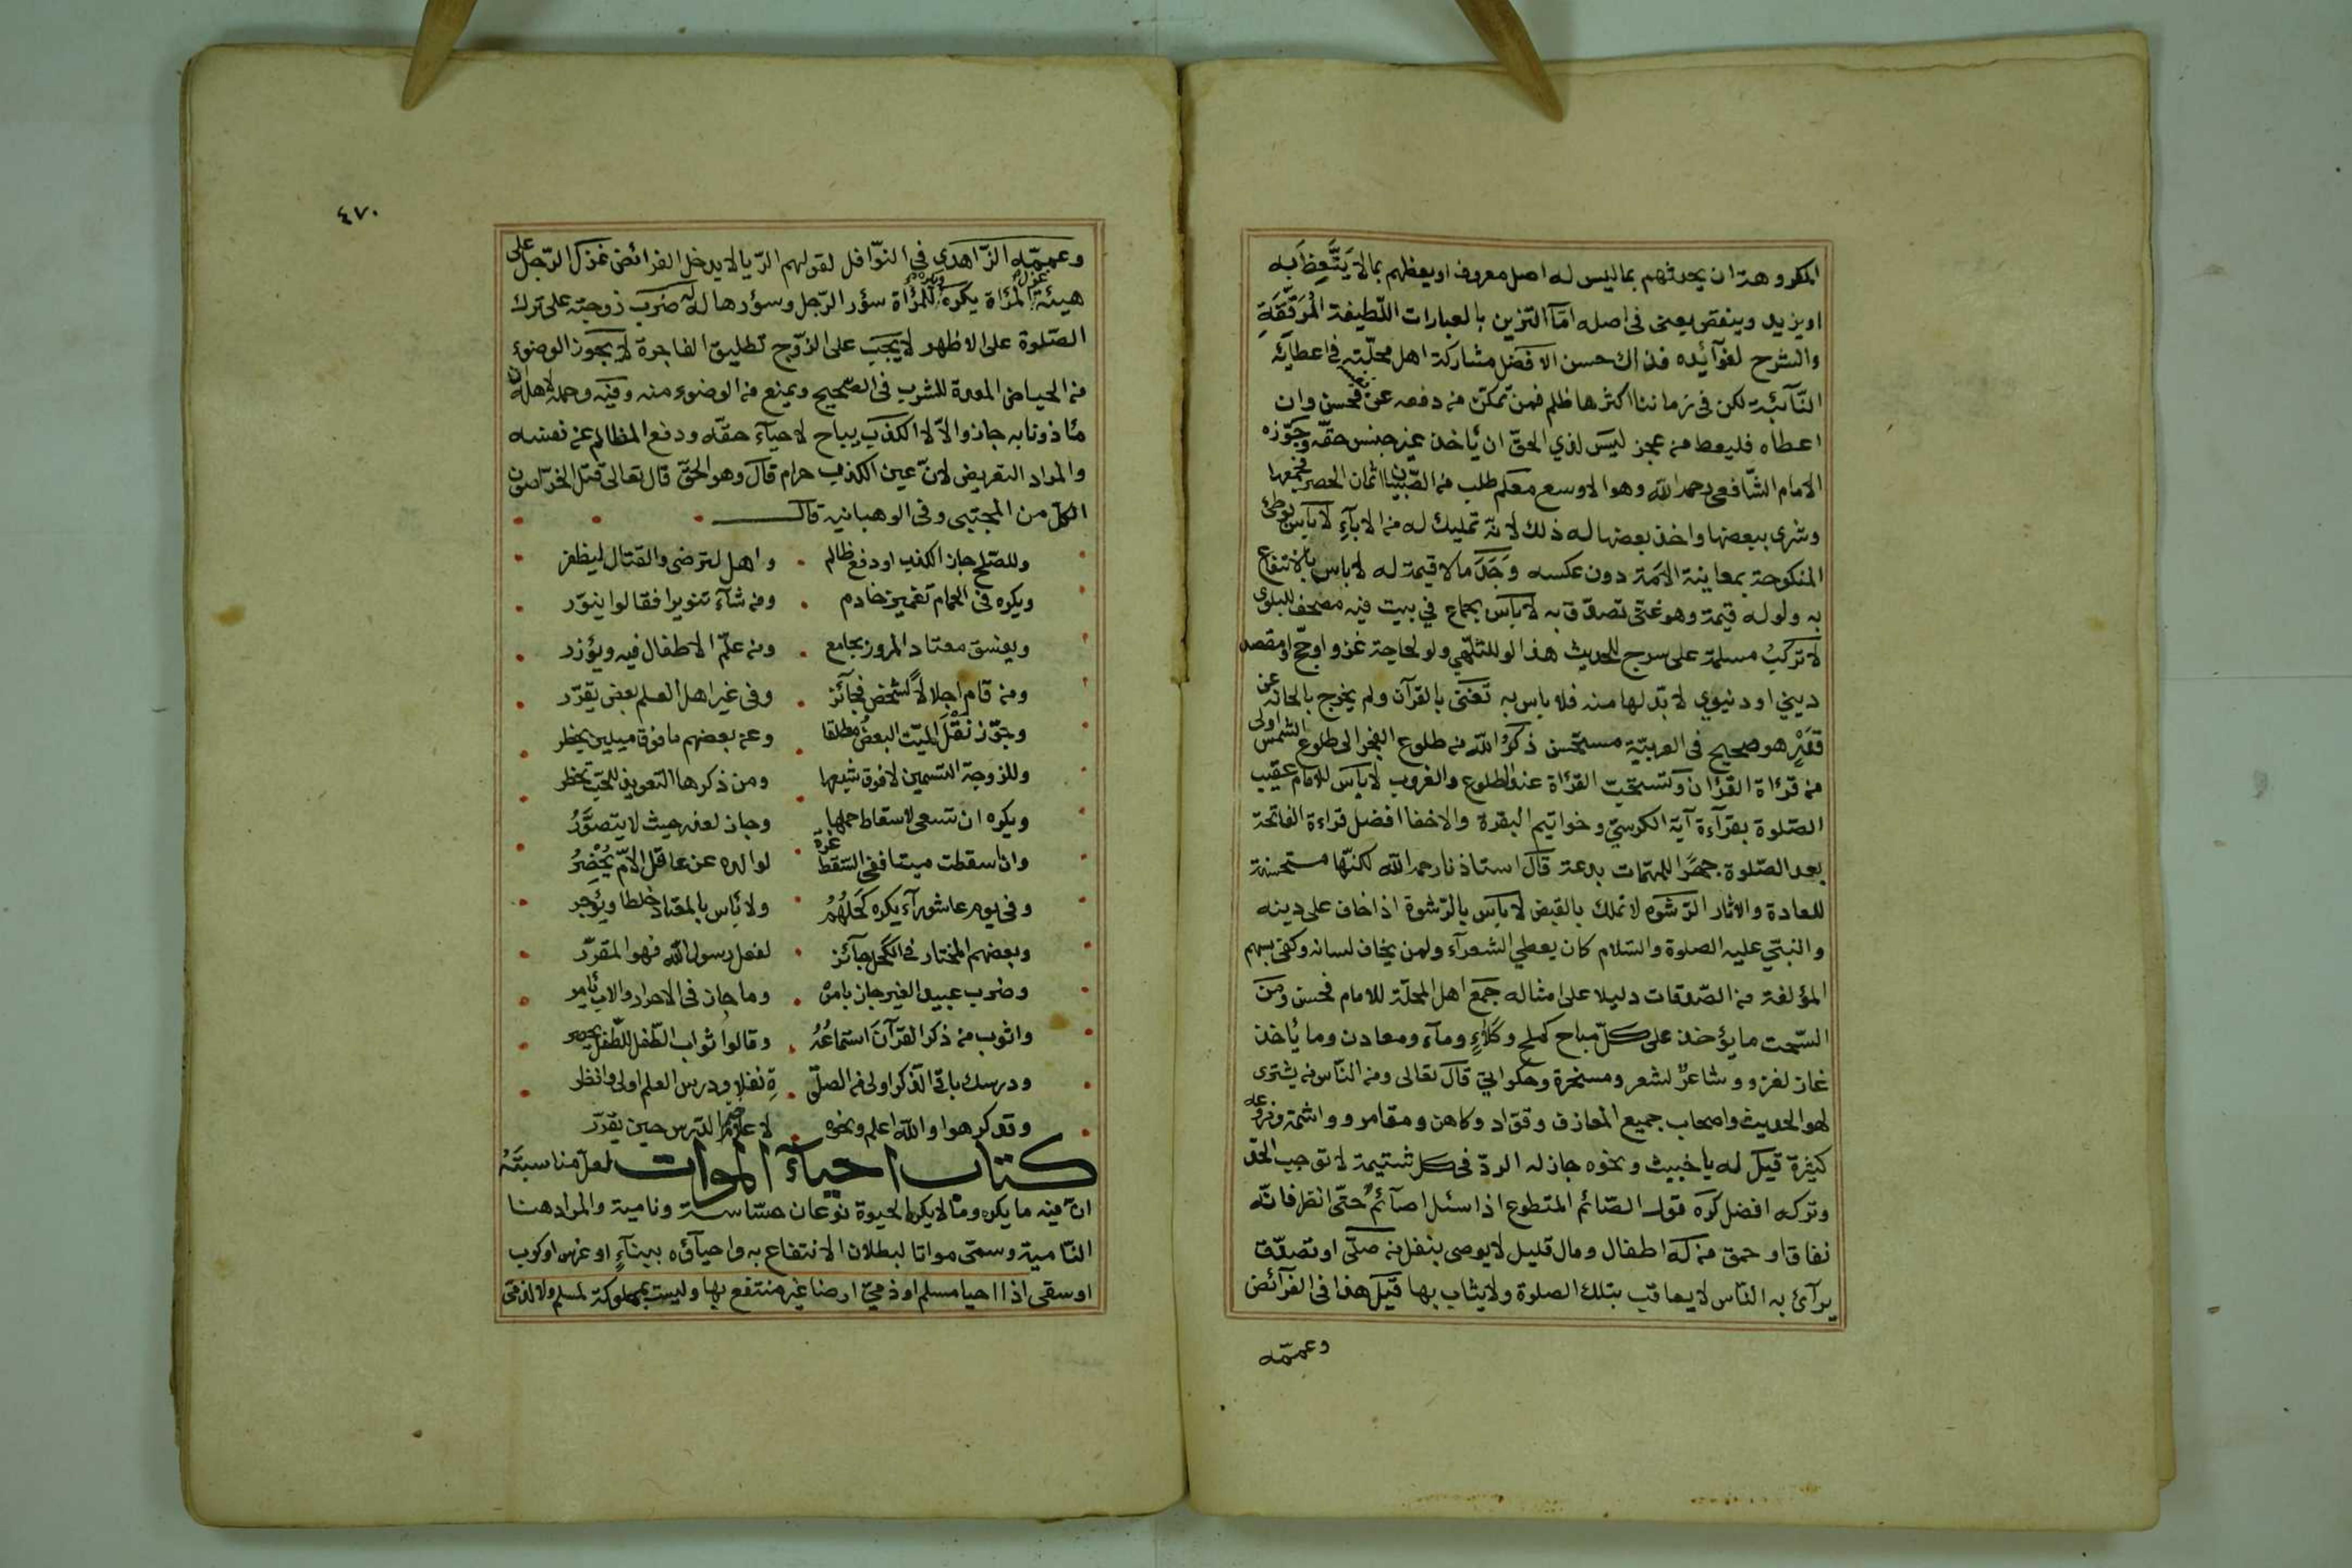 المكروهة ان يحدثهم بما ليس له اصل معروف او يعظهم بما لا يَتَّعِظ بِه
او يزيد وينقص يعنى فى اصله امّا التزين بالعبارات اللّطيفة المُرَقِّقَةِ
والشرح لفوآئده فذاك حسن الافضل مشاركة اهل محلّته فى اعطآئه
النّآئبة لكن فى زماننا اكثرها ظلم فمن تمكّن من دفعه عن نفسه فحسن وان
اعطاه فليعط من عجز ليس لذي الحقّ ان يأخذ غير جنس حقّه وجوّزه
الامام الشّافعى رحمه الله وهو الاوسع معلم طلب من الصّبيان اثمان الحصر فجمعها
وشرى ببعضها واخذ بعضها له ذلك لانّه تمليك له من الابآءِ لا بأس بوطئ
المنكوحة بمعاينة الامة دون عكسه وَجَدَ ما لا قيمة له لا باس بالانتفاع
به ولو له قيمة وهو غنى تصدّق به لا بأس بجماع في بيت فيه مصحف للبلوى
لا تركبُ مسلمة على سرج للحديث هذا لو للتلهّي ولو لحاجة غزو او حجّ او مقصد
ديني او دنيوي لا بدّ لها منه فلا باس به تغنّى بالقرآن ولم يخرج بالحانه عن
قدْرٍ هو صحيح فى العربيّة مستحسن ذكرُ الله من طلوع الفجر الى طلوع الشمس اولى
من قرأة القرأن وتستحبّ القرأة عند الطلوع والغروب لا بأس للامام عقيب
الصّلوة بقرآءة آية الكرسيّ وخواتيم البقرة والاخفا افضل قراءة الفاتحة
بعد الصّلوة جهرًا للمهمّات بدعة قال استاذنا رحمه الله لكنّها مستحسنة
للعادة والاثار الرّشوه لا تملك بالقبض لا بأس بالرّشوة اذا خاف على دينه
والنبيّ عليه الصلوة والسّلام كان يعطي الشعرآء ولمن يخاف لسانه وكفى بسهم
المؤلفة من الصّدقات دليلا على امثاله جمع اهل المحلّة للامام فحسن ومن
السّحت ما يؤخذ على كلّ مباح كملح وكَلَأٍ ومآء ومعادن وما يأخذه
غاز لغزو وشاعرٌ لشعر ومسخرة وحكواتيّ قال تعالى ومن النّاس من يشترى
لهو الحديث واصحاب جميع المعازف وقوّاد وكاهن ومقامر وواشمة وفروعه
كثيرة قيل له يا خبيث ونحوه جاز له الردّ فى كل شتيمة لا توجب الحدّ
وتركه افضل كره قول الصّائم المتطوع اذا سئل اصآئمٌ حتّى انظر فانّه
نفاق او حمق من له اطفال ومال قليل لا يوصى بنفل من صلّى او تصدّق
يرآئ به النّاس لا يعاقب بتلك الصلوة ولا يثاب بها قيل هذا فى الفرآئض
وعممّه
٤٧٠
وعممّه الزّاهدي في النوّافل لقولهم الرّيا لا يدخل الفرائض غزل الرّجل على
هيئة غزل المرأة يكره ويكره للمرأة سؤر الرّجل وسؤرها له له ضرب زوجته على ترك
الصّلوة على الاظهر لا يجب على الزّوج تطليق الفاجرة لا يجوز الوضوء
من الحياض المعدة للشرب فى الصّحيح ويمنع من الوضوء منه وفيه وحمله لاهله ان
مأذونا به جاز والاّ لا الكذب يباح لاحيآء حقّه ودفع المظالم عن نفسه
والمراد التعريض لانّ عين الكذب حرام قال وهو الحقّ قال تعالى قتل الخرّاصون
الكلّ من المجتبى وفى الوهبانيه قال
وللصّلح جاز الكذب او دفع ظالم واهل لترضى والقتال ليظفر
ويكره فى الحمام تغميز خادم ومن شآء تنويرا فقالوا ينوّر
ويفسق معتاد المرور بجامع ومن علّم الاطفال فيه ويؤزر
ومن قام اجلالاً لشخص فجآئز وفى غير اهل العلم بعض يقرّر
وجوّز نَقْلَ الميّت البعضُ مطلقا وعن بعضهم ما فوق ميلين يحظر
وللزوجة التسمين لا فوق شبعها ومن ذكرها التعويذ للحبّ تحظر
ويكره ان تسعى لاسقاط حملها وجاز لعذر حيث لا يتصوَّرُ
وان اسقطت ميتا ففى السّقط غرّة لوالده عن عاقل الامّ يُحْضَرُ
وفى يوم عاشورآء يكره كحلهُمْ ولا بأس بالمعتاد خلطا ويُؤجر
وبعضهم المختار فى الكحل جآئز لفعل رسول الله فهو المقرّر
وضرب عبيد الغير جاز بامره وما جاز فى الاحرار والاب يأمر
واثوب من ذكر القرآن استماعُهُ وقالوا ثواب الطّفل للطّفل يحصر
ودرسك باقى الذّكر اولى من الصلّو ةِ نفلا ودرس العلم اولى وانظر
وقد كرهوا والله اعلم ونحوه لاعلام ختم الدّرس حين يقرّر
كتاب احيآء الموات لعلّ مناسبتهُ
انّ فيه ما يكره وما لا يكره الحيوة نوعان حسّاسة ونامية والمراد هنا
النّامية وسمّى مواتا لبطلان الانتفاع به واحيآؤه ببنآءٍ او غرس او كرب
او سقى اذا احيا مسلم او ذميّ ارضا غير منتفع بها وليست بمملوكة لمسلم ولا لذمّى